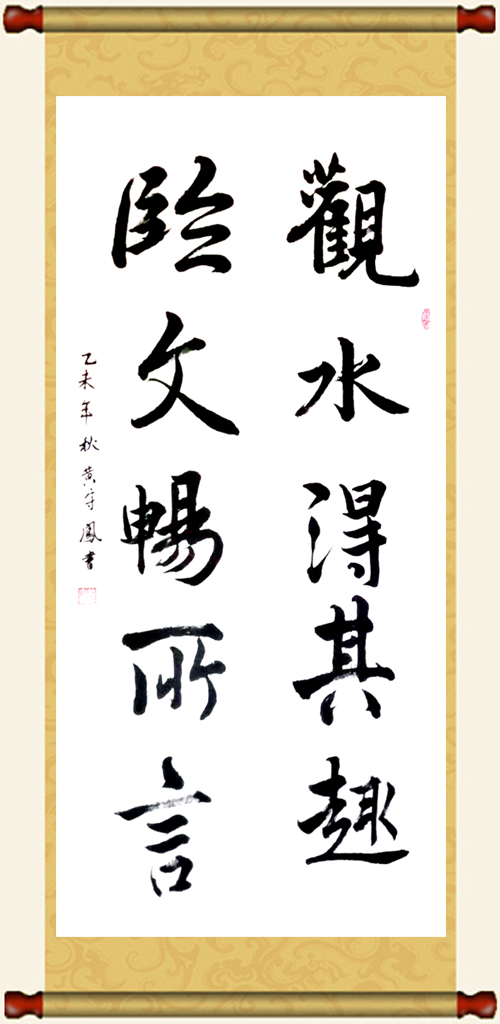 觀水得其趣
臨文暢所言
乙未年秋黄守鳳書